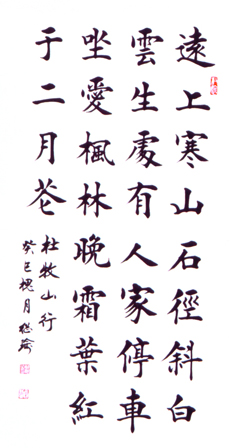 遠上寒山石徑斜白
雲生處有人家停車
坐愛楓林晚霜葉紅
于二月花
杜牧山行
癸巳槐月